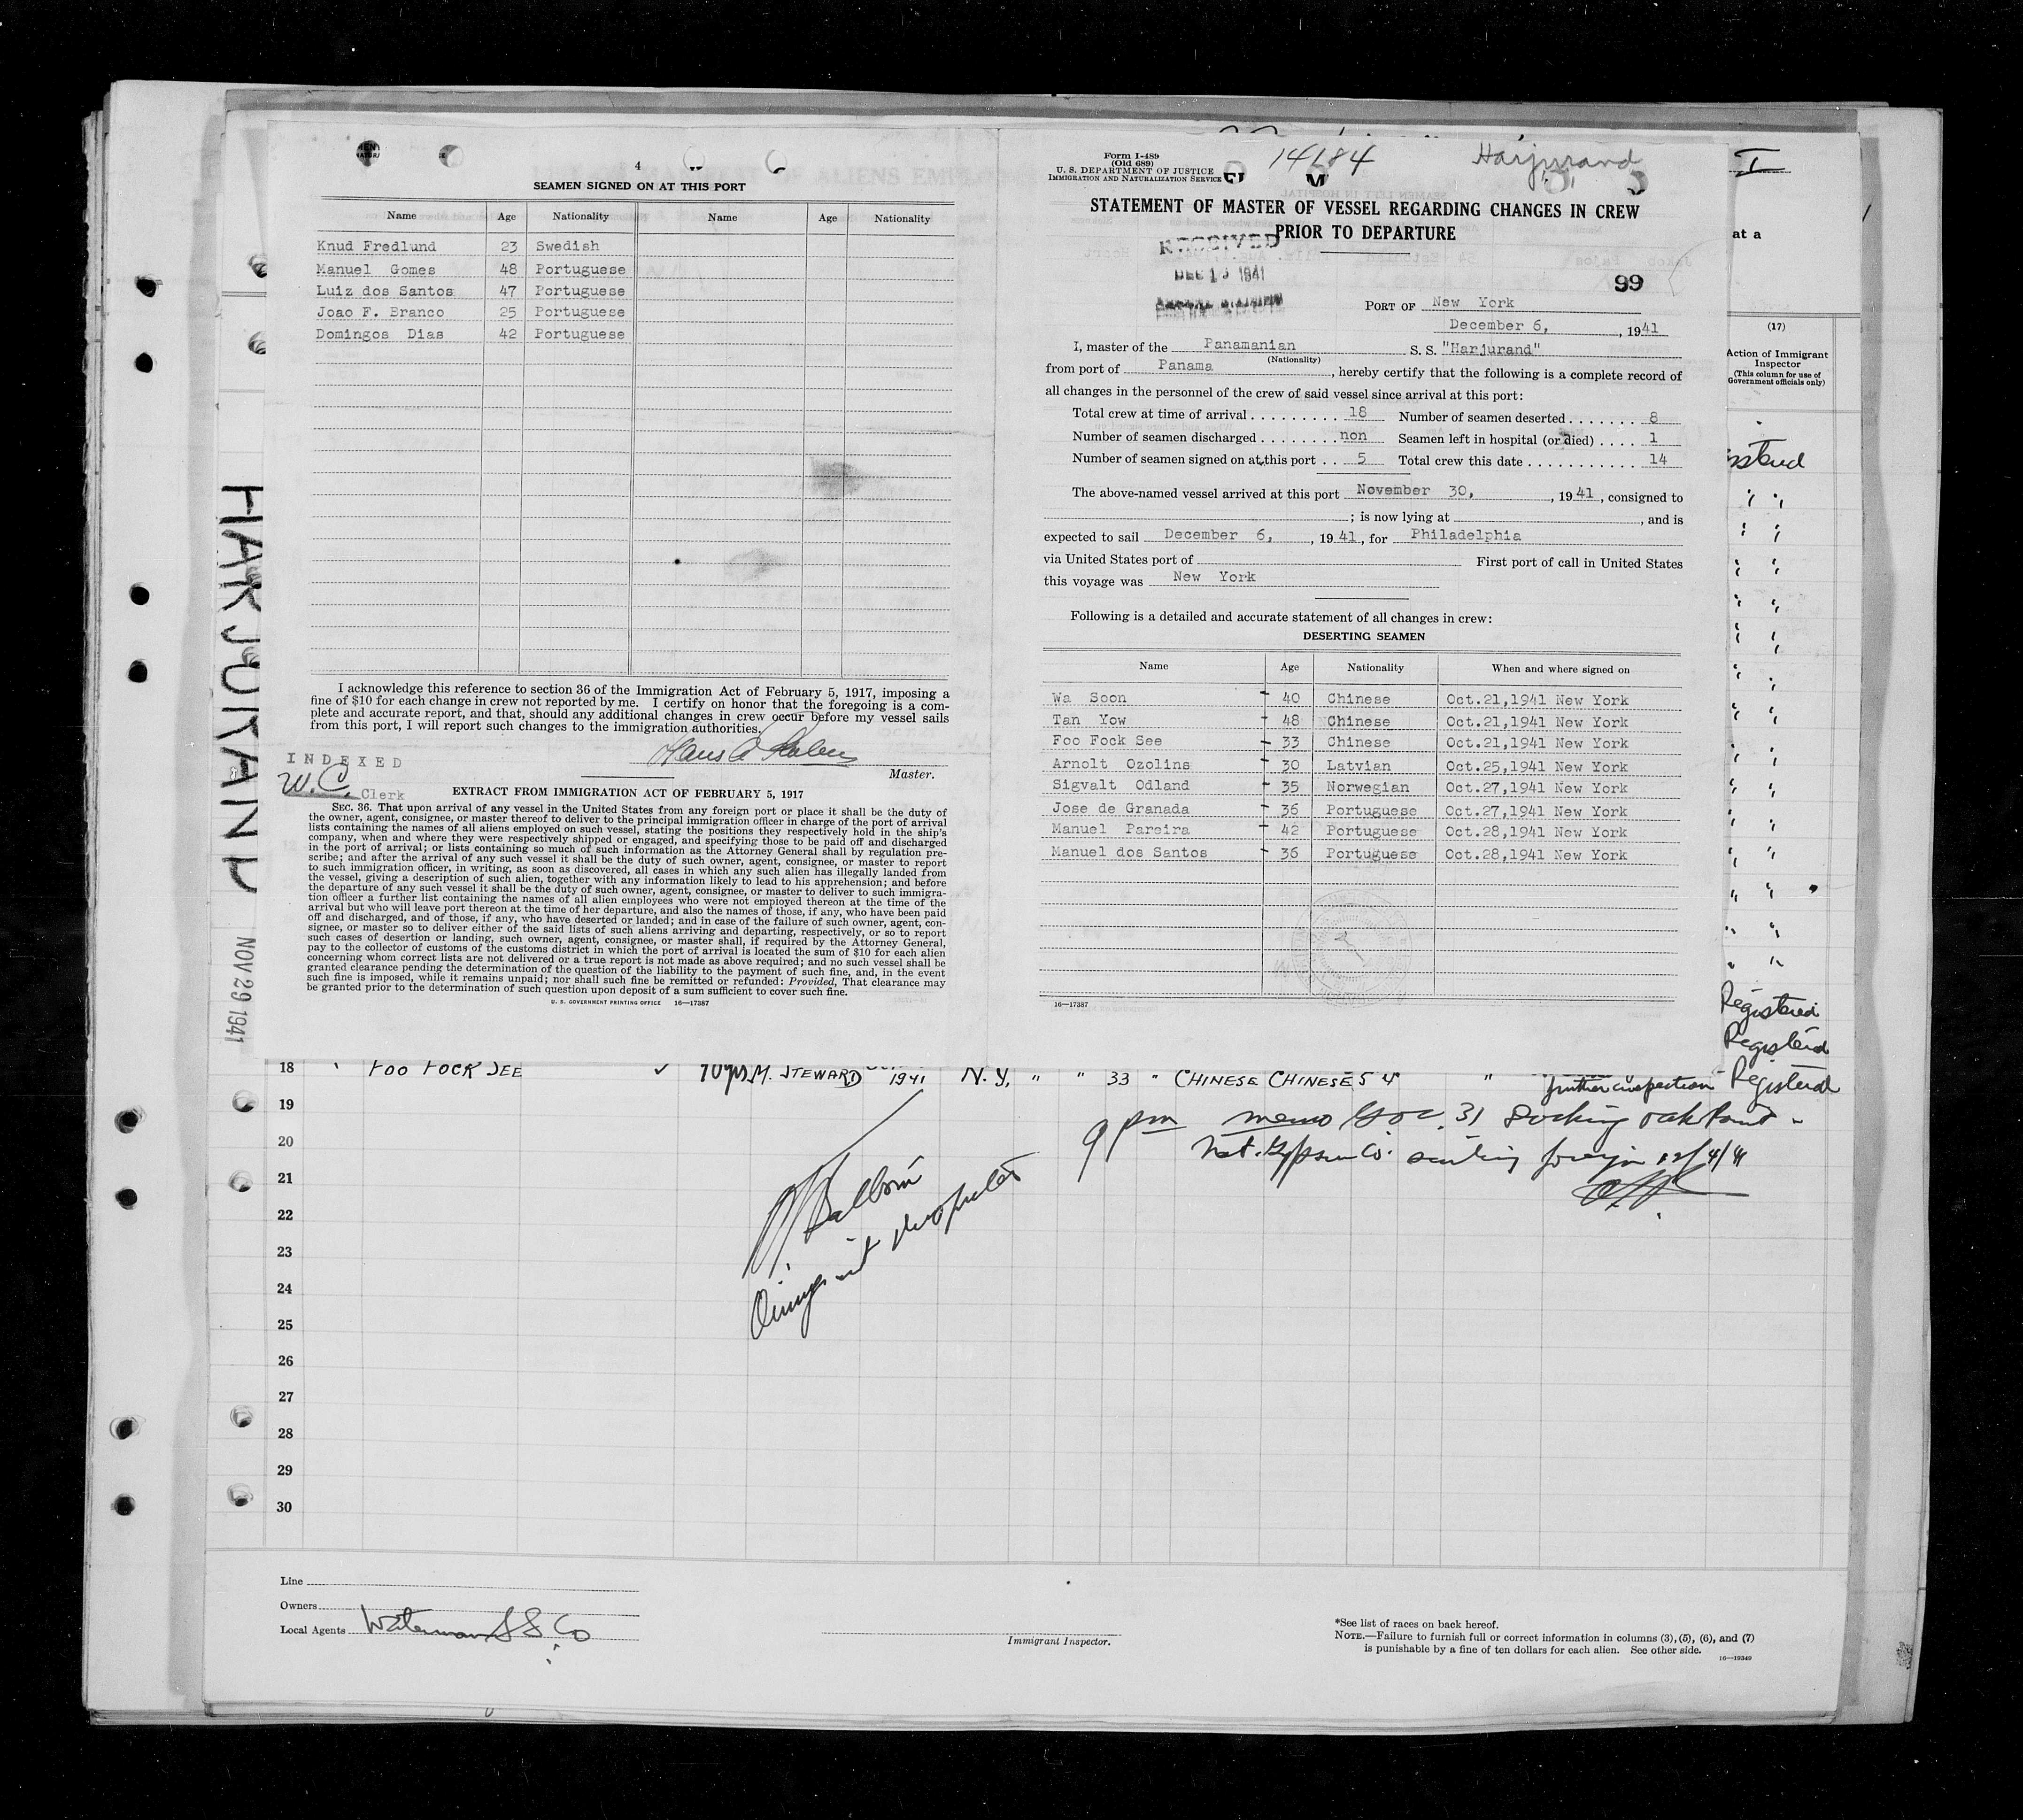 4
SEAMEN SIGNED ON AT THIS PORT
Name Age Nationality Name Age Nationality
Knud Fredlund 23 Swedish
Manuel Gomes 48 Portuguese
Luiz dos Santos 47 Portuguese
Joao F. Branco 25 Portuguese
Domingos Dias 42 Portuguese
I acknowledge this reference to section 36 of the Immigration Act of February 5, 1917, imposing a
fine of $10 for each change in crew not reported by me. I certify on honor that the foregoing is a com-
plete and accurate report, and that, should any additional changes in crew occur before my vessel sails
from this port, I will report such changes to the immigration authorities.
INDEXED
W.C. Clerk
Master.
EXTRACT FROM IMMIGRATION ACT OF FEBRUARY 5, 1917
SEC. 36. That upon arrival of any vessel in the United States from any foreign port or place it shall be the duty of
the owner, agent, consignee, or master thereof to deliver to the principal immigration officer in charge of the port of arrival
lists containing the names of all aliens employed on such vessel, stating the positions they respectively hold in the ship's
company, when and where they were respectively shipped or engaged, and specifying those to be paid off and discharged
in the port of arrival; or lists containing so much of such information as the Attorney General shall by regulation pre-
scribe; and after the arrival of any such vessel it shall be the duty of such owner, agent, consignee, or master to report
to such immigration officer, in writing, as soon as discovered, all cases in which any such alien has illegally landed from
the vessel, giving a description of such alien, together with any information likely to lead to his apprehension; and before
the departure of any such vessel it shall be the duty of such owner, agent, consignee, or master to deliver to such immigra-
tion officer a further list containing the names of all alien employees who were not employed thereon at the time of the
arrival but who will leave port thereon at the time of her departure, and also the names of those, if any, who have been paid
off and discharged, and of those, if any, who have deserted or landed; and in case of the failure of such owner, agent, con-
signee, or master so to deliver either of the said lists of such aliens arriving and departing, respectively, or so to report
such cases of desertion or landing, such owner, agent, consignee, or master shall, if required by the Attorney General,
pay to the collector of customs of the customs district in which the port of arrival is located the sum of $10 for each alien
concerning whom correct lists are not delivered or a true report is not made as above required; and no such vessel shall be
granted clearance pending the determination of the question of the liability to the payment of such fine, and, in the event
such fine is imposed, while it remains unpaid; nor shall such fine be remitted or refunded: Provided, That clearance may
be granted prior to the determination of such question upon deposit of a sum sufficient to cover such fine.
U. S. GOVERNMENT PRINTING OFFICE 16—17387
HARJURAND
NOV 29 1941
Form I-489
(Old 689)
U. S. DEPARTMENT OF JUSTICE
IMMIGRATION AND NATURALIZATION SERVICE
14184 Harjurand
STATEMENT OF MASTER OF VESSEL REGARDING CHANGES IN CREW
PRIOR TO DEPARTURE
RECEIVED
1941
99
PORT OF New York
December 6, , 1941
I, master of the Panamanian S. S. "Harjurand"
(Nationality)
from port of Panama, hereby certify that the following is a complete record of
all changes in the personnel of the crew of said vessel since arrival at this port:
Total crew at time of arrival . . . . . . . . . 18 Number of seamen deserted . . . . . . . 8
Number of seamen discharged . . . . . . . . non Seamen left in hospital (or died) . . . . 1
Number of seamen signed on at this port . . 5 Total crew this date . . . . . . . . . . . 14
The above-named vessel arrived at this port November 30, , 1941, consigned to
; is now lying at , and is
expected to sail December 6, , 1941, for Philadelphia
via United States port of First port of call in United States
this voyage was New York
Following is a detailed and accurate statement of all changes in crew:
DESERTING SEAMEN
Name Age Nationality When and where signed on
Wa Soon 40 Chinese Oct.21,1941 New York
Tan Yow 48 Chinese Oct.21,1941 New York
Foo Fock See 33 Chinese Oct.21,1941 New York
Arnolt Ozolins 30 Latvian Oct.25,1941 New York
Sigvalt Odland 35 Norwegian Oct.27,1941 New York
Jose de Granada 36 Portuguese Oct.27,1941 New York
Manuel Pareira 42 Portuguese Oct.28,1941 New York
Manuel dos Santos 36 Portuguese Oct.28,1941 New York
16—17387
I
at a
(17)
Action of Immigrant
Inspector
(This column for use of
Government officials only)
Registered
Registered
18 FOO FOCK SEE 10 yrs M. STEWARD 1941 N.Y. " " 33 " CHINESE CHINESE 5 4 " further inspection Registered
19
20
21
22
23
24
25
26
27
28
29
30
9 pm memo 31 Docking
Nat. Gypsum Co. sailing foreign 12/4/41
Line
Owners
Local Agents Waterman S S Co
Immigrant Inspector.
*See list of races on back hereof.
NOTE.—Failure to furnish full or correct information in columns (3), (5), (6), and (7)
is punishable by a fine of ten dollars for each alien. See other side.
16—19349